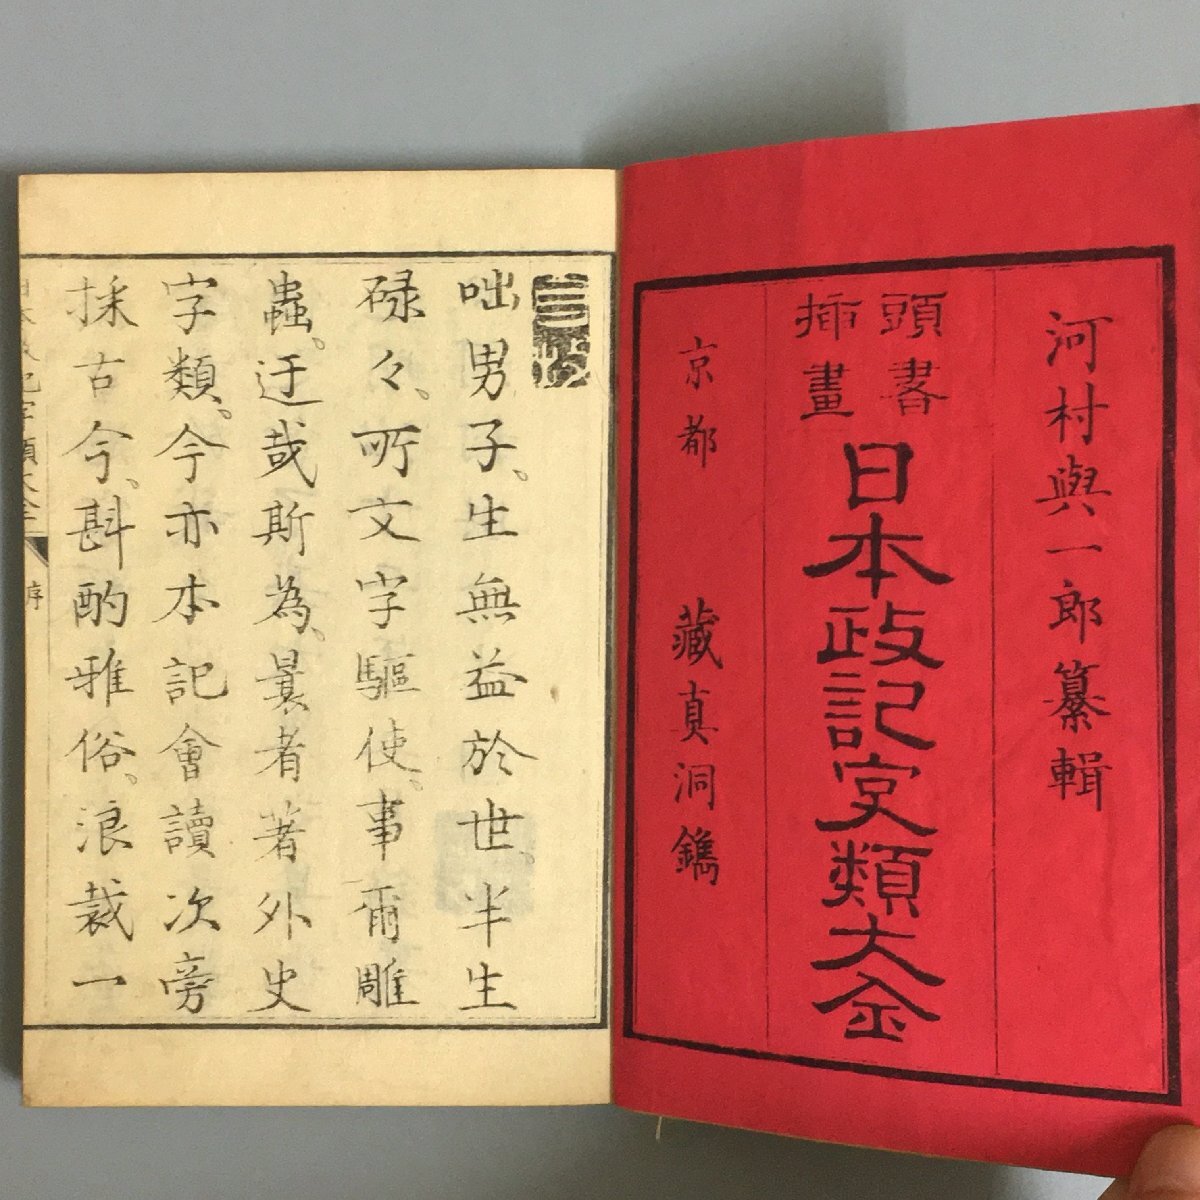 河村與一郎纂輯
頭書
挿畫
日本政記字類大全
京都 藏真洞鐫
咄男子。生無益於世。半生
碌々、所文字驅使。事爾雕
蟲。迂哉斯為、曩者著外史
字類。今亦本記會讀次旁
採古今、斟酌雅俗、浪裁一
日本政記字類大全 序